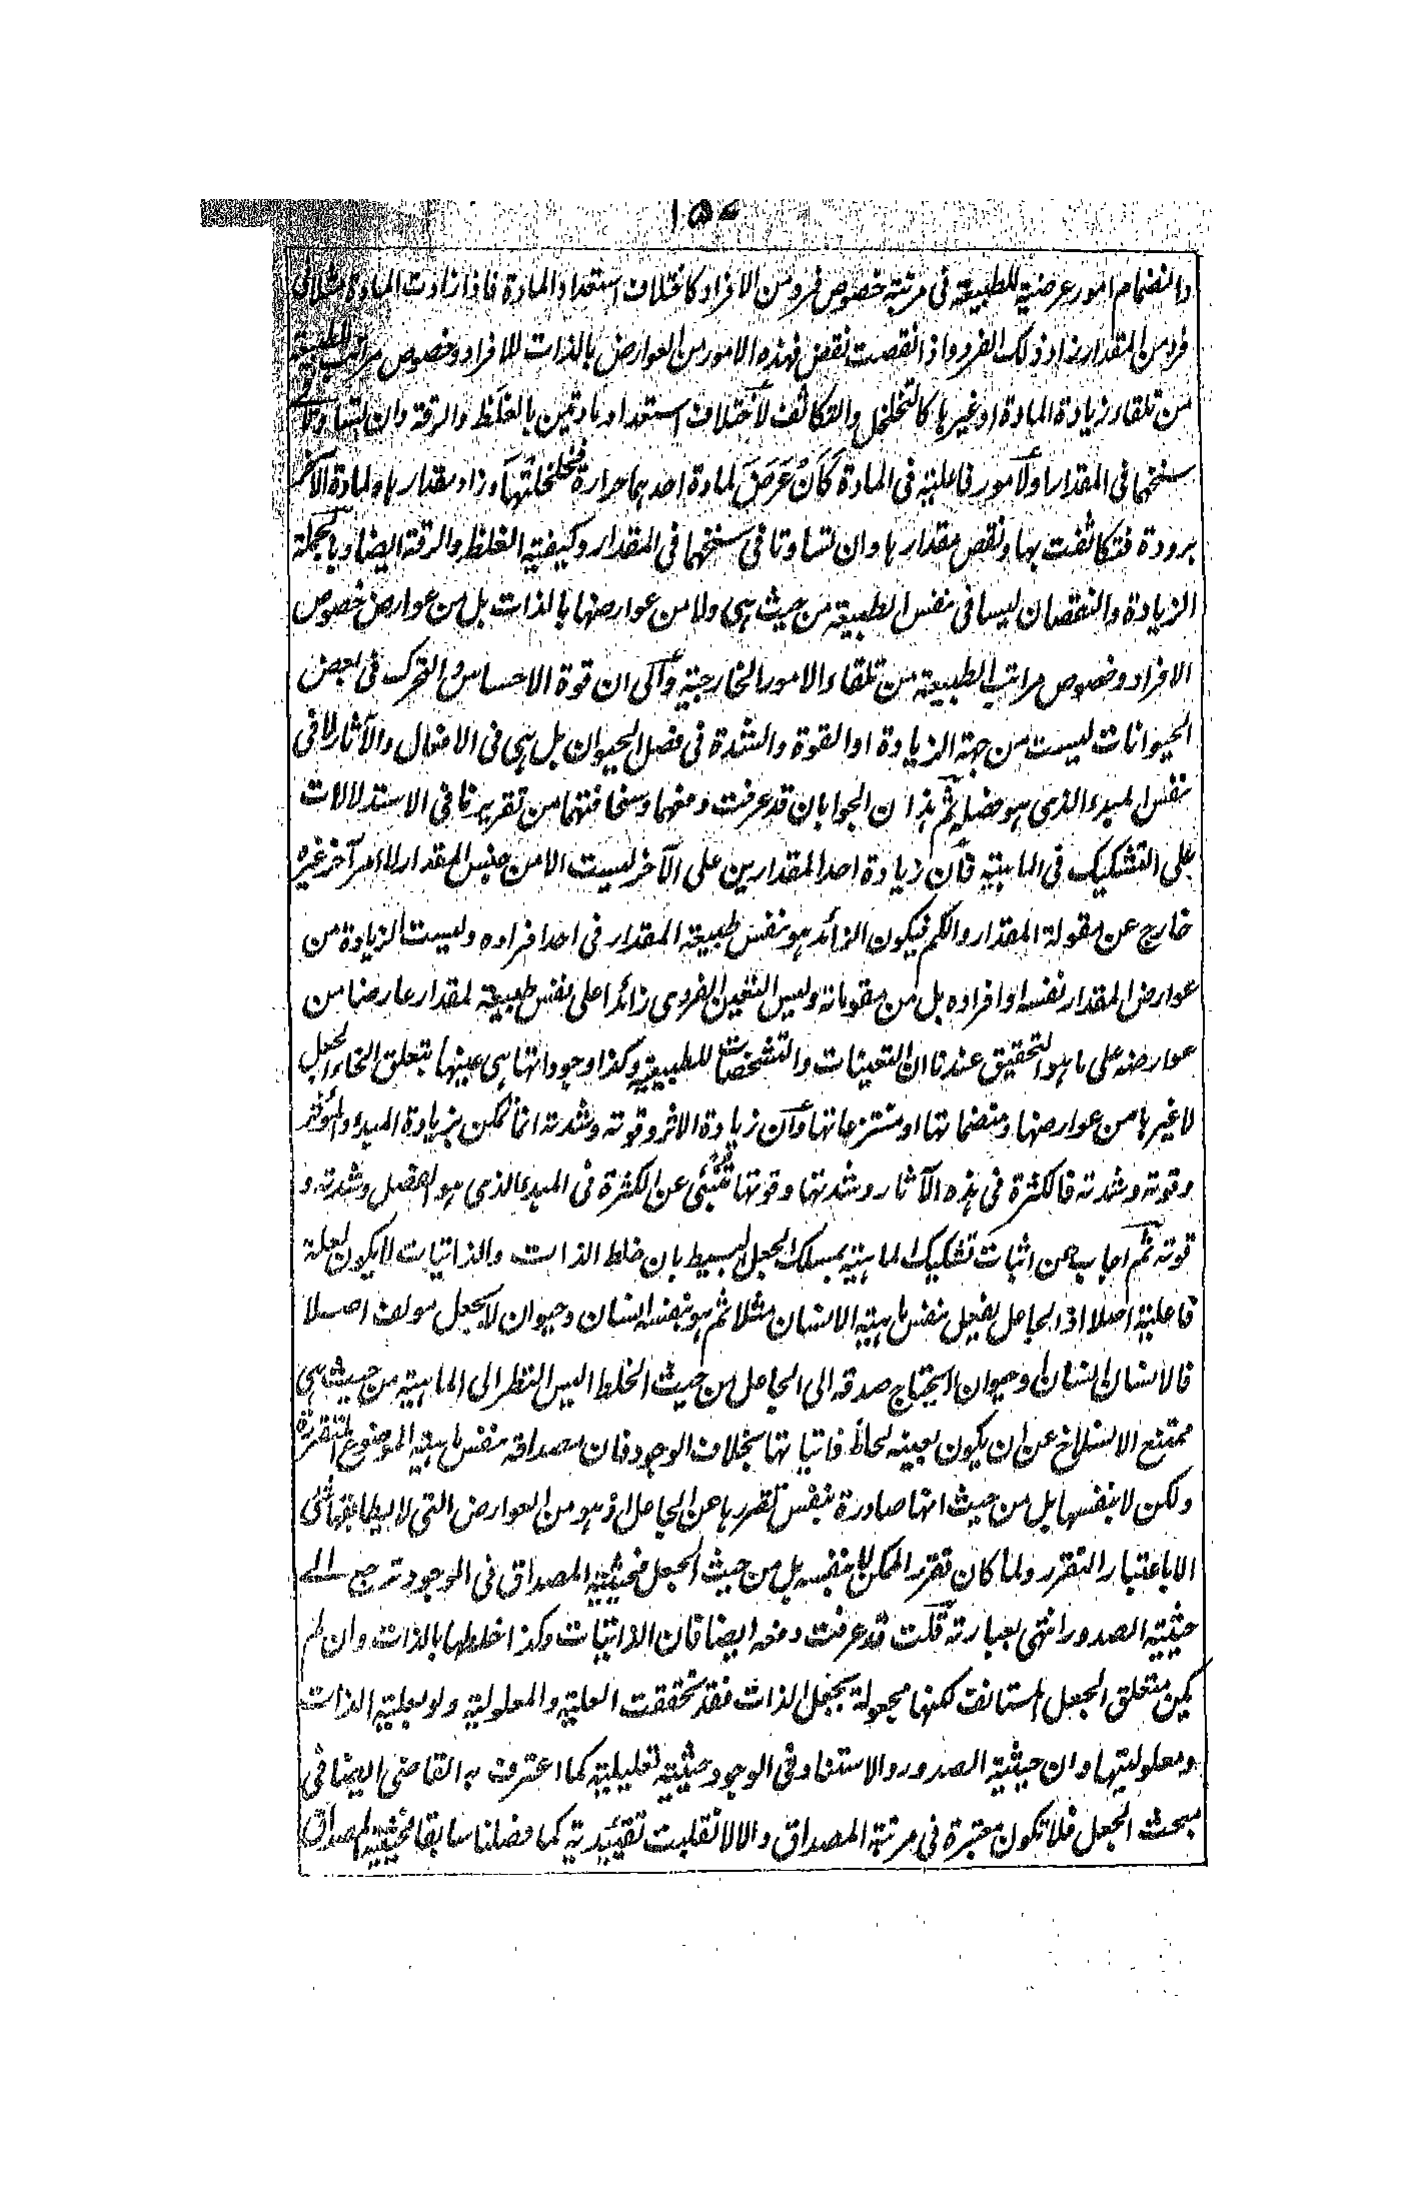 ١٥٧
والنضمام امور عرضية للطبيعة فى مرتبة خصوص فرد من الافراد كاختلاف استعداد المادة فاذا زادت المادة مثلا فى
فرد من المقدار زاد ذلك الفرد واذا نقصت نقص فهذه الامور من العوارض بالذات للافراد وخصوص مراتب الطبيعة
من تلقاء زيادة المادة او غيرها كالتخلخل والتكاثف لاختلاف استعداد مادتين بالغلظ والرقة وان تساوتا
سنخهما فى المقدار او لامور فاعلية فى المادة كأن عرض لمادة احدهما حرارة فتخلخلتها وزاد مقدارها ولمادة الآخر
برودة فتكاثفت بها ونقص مقدارها وان تساوتا فى سنخهما فى المقدار وكيفية الغلظ والرقة ايضا وبالجملة
الزيادة والنقصان ليسا فى نفس الطبيعة من حيث هى ولا من عوارضها بالذات بل من عوارض خصوص
الافراد وخصوص مراتب الطبيعة من تلقاء الامور الخارجية وآلى ان قوة الاحساس والتحرك فى بعض
الحيوانات ليست من جهة الزيادة او القوة والشدة فى فصل الحيوان بل هى فى الافعال والآثار لا فى
نفس المبدء الذى هو فصله ثم هذان الجوابان قد عرفت دفعهما وسخافتهما من تقريرنا فى الاستدلالات
على التشكيك فى الماهية فان زيادة احد المقدارين على الآخر ليست الا من جنس المقدار لا امر آخر غيره
خارج عن مقولة المقدار والكم فيكون الزائد هو نفس طبيعة المقدار فى احد افراده وليست الزيادة من
عوارض المقدار نفسه او افراده بل من مقوماته وليس التعين الفردى زائدا على نفس طبيعة لمقدار عارضا من
عوارضه على ما هو التحقيق عندنا ان التعينات والتشخصات للطبيعة وكذا وجوداتها هى عينها بتعلق انحاء الجعل
لا غيرها من عوارضها ومنضماتها او منتزعاتها وآن زيادة الاثر وقوته وشدته انما تمكن بزيادة المبدء والمؤثر
وقوته وشدته فالكثرة فى هذه الآثار وشدتها وقوتها تنبئ عن الكثرة فى المبدء الذى هو الفصل وشدته و
قوته ثم اجاب عن اثبات تشكيك الماهية بمسلك الجعل البسيط بان خلط الذات والذاتيات لا يكون لعلة
فاعلية اصلا اذ الجاعل يفعل نفس ماهية الانسان مثلا ثم هو بنفسه انسان وحيوان لا بجعل مولف اصلا
فالانسان انسان وحيوان لا يحتاج صدقه الى الجاعل من حيث الخلط اليس النظر الى الماهية من حيث هى
ممتنع الانسلاخ عن ان يكون بعينه لحاظ ذاتياتها بخلاف الوجود فان مصداقه نفس ماهية الموضوع المتقررة
ولكن لا بنفسها بل من حيث انها صادرة بنفس تقررها عن الجاعل اذ هو من العوارض التى لا يطابقها شئ
الا باعتبار التقرر ولما كان تقرر الممكن لا بنفسه بل من حيث الجعل فحيثية المصداق فى الوجود ترجع الى
حيثية الصدور انتهى بعبارته قلت قد عرفت دفعه ايضا فان الذاتيات وكذا خلطها بالذات وان لم
يكن متعلق الجعل المستانف لكنها مجعولة بجعل الذات فقد تحققت العلية والمعلولية ولو بعلية الذات
ومعلوليتها وان حيثية الصدور والاستناد فى الوجود حيثية تعليلية كما اعترف به القاضى ايضا فى
مبحث الجعل فلا تكون معتبرة فى مرتبة المصداق والا لانقلبت تقييدية كما فصلنا سابقا فحيثية المصداق